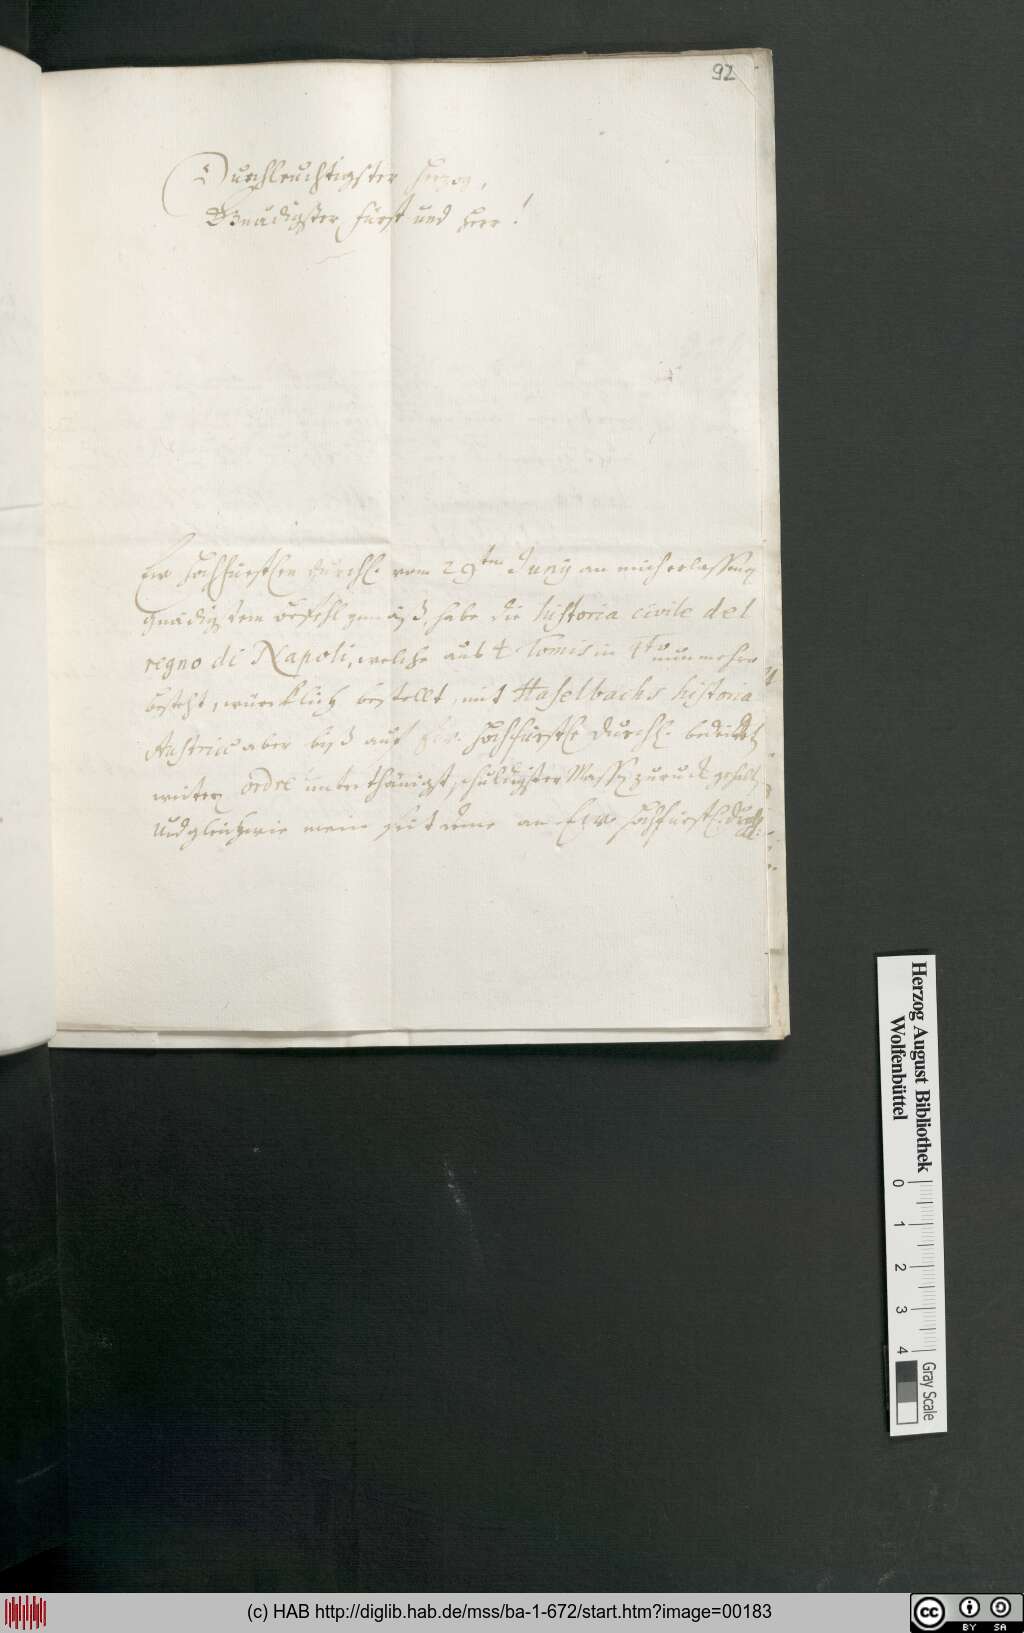 92
Durchleuchtigster Herzog,
Gnädigster Fürst und Herr!
Ew Hochfürstlen Durchl. vom 29ten Juny an mich erlassenen
gnädigstem befehl gemäß, habe die historia civile del
regno di Napoli, welche aus 4 Tomis in 4to nunmehro
besteht, würcklich bestellt, mit Haselbachs historia
Austriæ aber biß auf Ew. Hochfürstl. Durchl.
weitere ordre unterthänigst schuldigster Massen zuruck gehalten
Und gleichwie mein seit deme an Ew. Hochfürstl. Durchl.
Herzog August Bibliothek
Wolfenbüttel
0 1 2 3 4
Gray Scale
(c) HAB http://diglib.hab.de/mss/ba-1-672/start.htm?image=00183
cc BY SA